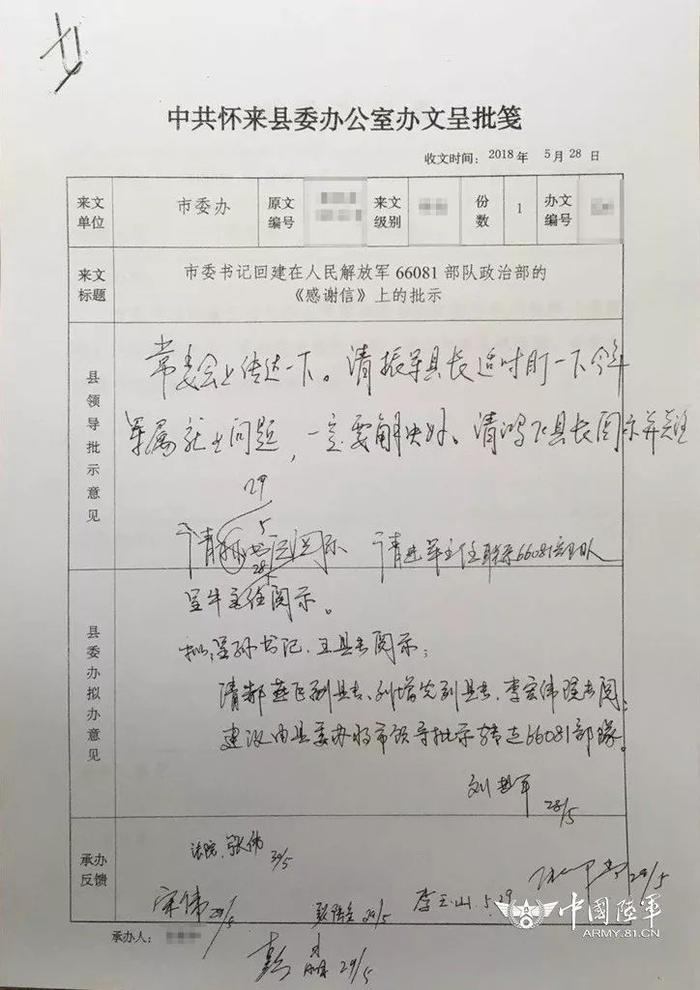 中共怀来县委办公室办文呈批笺
收文时间：2018年 5月28日
来文单位 市委办 原文编号 来文级别 份数 1 办文编号
来文标题 市委书记回建在人民解放军66081部队政治部的
《感谢信》上的批示
县领导批示意见
常委会上传达一下。请振军县长适时盯一下今年
军属就业问题，一定要解决好。请鸿飞县长阅示并关注
29/5
请 书记阅示 请 军主任联系66081部队
28/5
县委办拟办意见
呈牛主任阅示。
拟：呈孙书记、王县长阅示；
请郝燕飞副县长、刘增先副县长、李宏伟院长阅；
建议由县委办将市领导批示转送66081部队。
刘 军
28/5
承办反馈
法院 张伟 30/5
宋伟 29/5
29/5
李玉山 5.29
29/5
承办人：
彭 29/5
中國陸軍
ARMY.81.CN